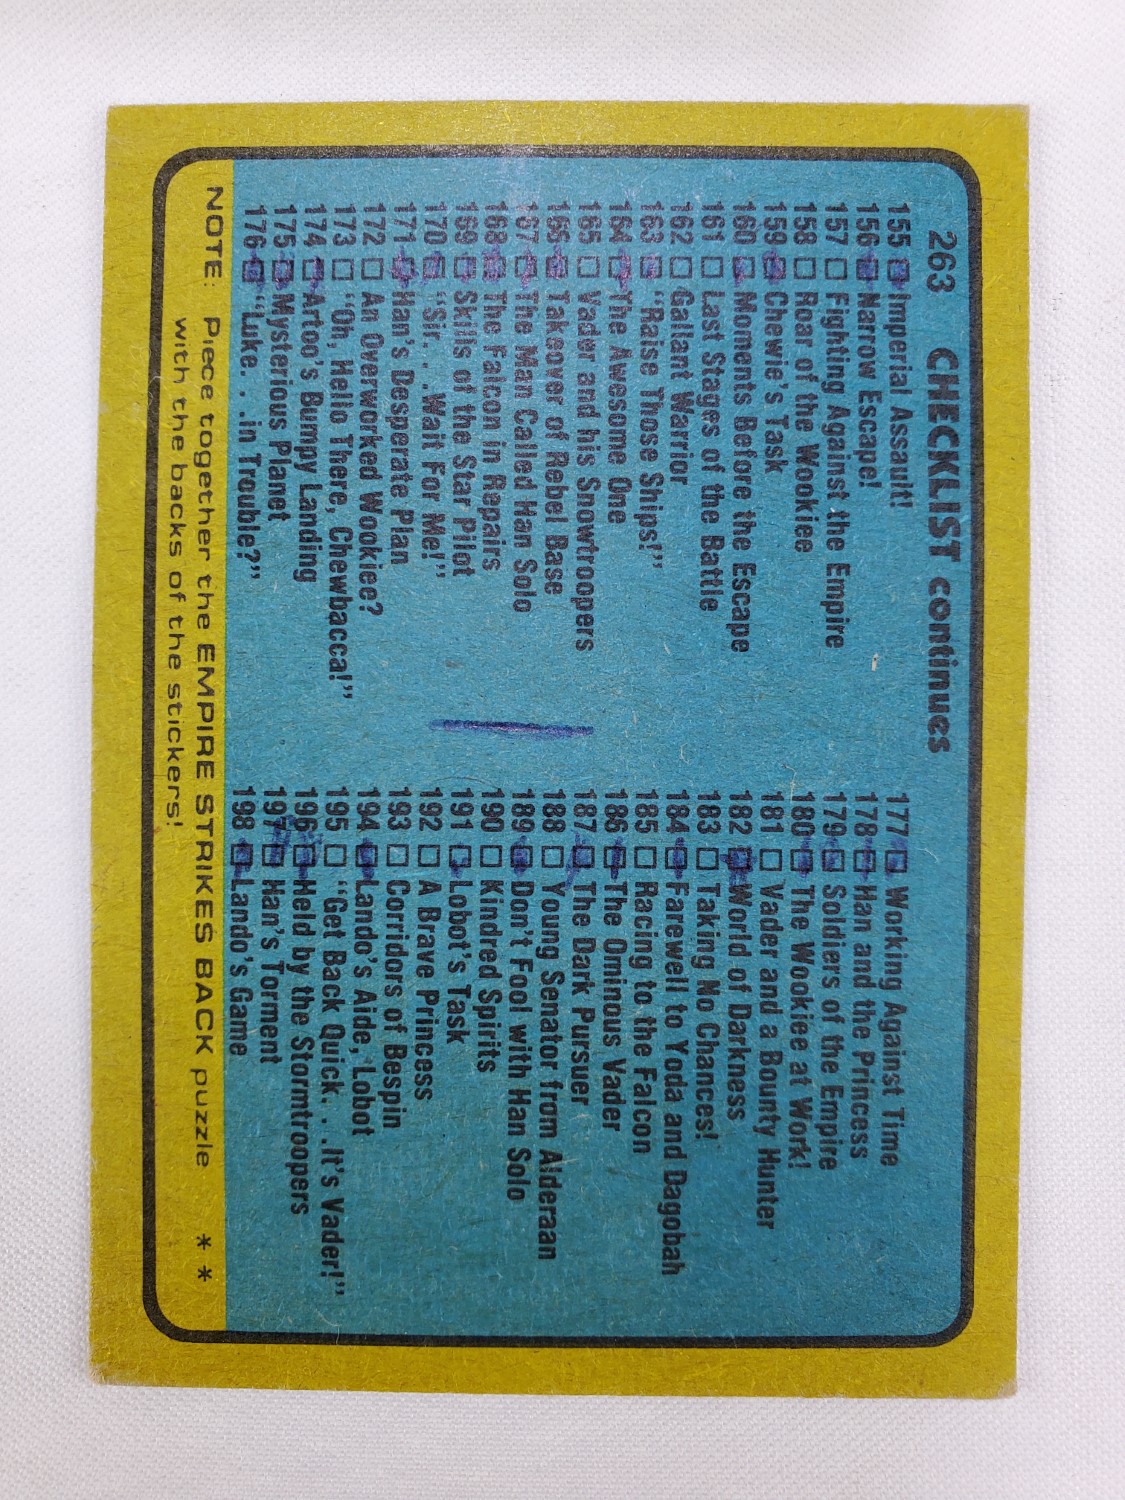 263 CHECKLIST continues
155 □ Imperial Assault!
156 □ Narrow Escape!
157 □ Fighting Against the Empire
158 □ Roar of the Wookiee
159 □ Chewie's Task
160 □ Moments Before the Escape
161 □ Last Stages of the Battle
162 □ Gallant Warrior
163 □ "Raise Those Ships!"
164 □ The Awesome One
165 □ Vader and his Snowtroopers
166 □ Takeover of Rebel Base
167 □ The Man Called Han Solo
168 □ The Falcon in Repairs
169 □ Skills of the Star Pilot
170 □ "Sir. . .Wait For Me!"
171 □ Han's Desperate Plan
172 □ An Overworked Wookiee?
173 □ "Oh, Hello There, Chewbacca!"
174 □ Artoo's Bumpy Landing
175 □ Mysterious Planet
176 □ "Luke. . .in Trouble?"
177 □ Working Against Time
178 □ Han and the Princess
179 □ Soldiers of the Empire
180 □ The Wookiee at Work!
181 □ Vader and a Bounty Hunter
182 □ World of Darkness
183 □ Taking No Chances!
184 □ Farewell to Yoda and Dagobah
185 □ Racing to the Falcon
186 □ The Ominous Vader
187 □ The Dark Pursuer
188 □ Young Senator from Alderaan
189 □ Don't Fool with Han Solo
190 □ Kindred Spirits
191 □ Lobot's Task
192 □ A Brave Princess
193 □ Corridors of Bespin
194 □ Lando's Aide, Lobot
195 □ "Get Back Quick. . .It's Vader!"
196 □ Held by the Stormtroopers
197 □ Han's Torment
198 □ Lando's Game
NOTE: Piece together the EMPIRE STRIKES BACK puzzle * *
with the backs of the stickers!